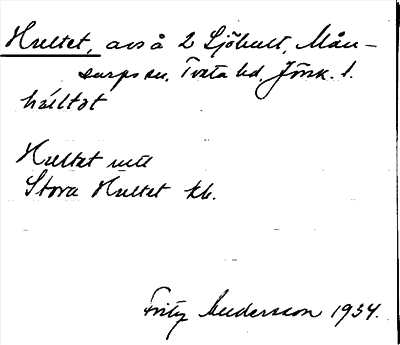 Hultet, avs å 2 Sjöhult, Mån-
sarps sn, Tveta hd, Jönk. l.
húltət
Hultet mtl
Stora Hultet kb.
Fritz Andersson 1934.